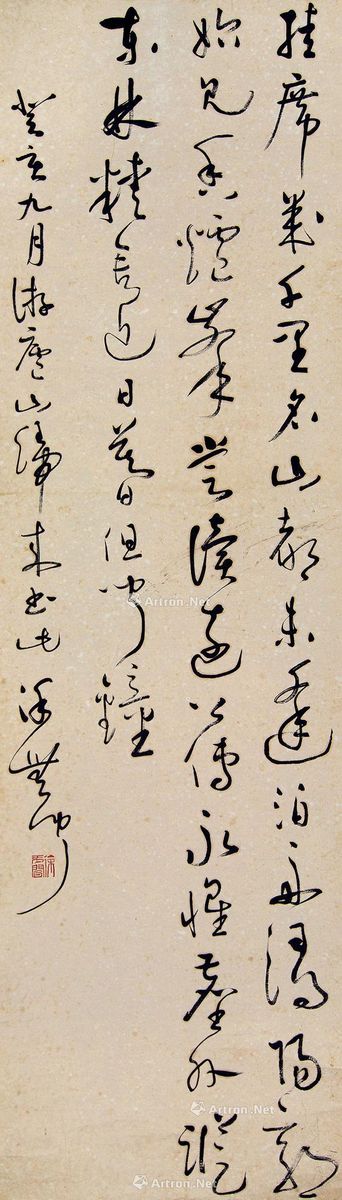 挂席几千里名山都未逢泊舟浔阳郭
始见香炉峰尝读远公传永怀尘外踪
东林精舍近日暮日但闻钟
癸亥九月游庐山归来书此 徐无闻
Artron.Net
Artron.Net
Artron.Net
Artron.Net